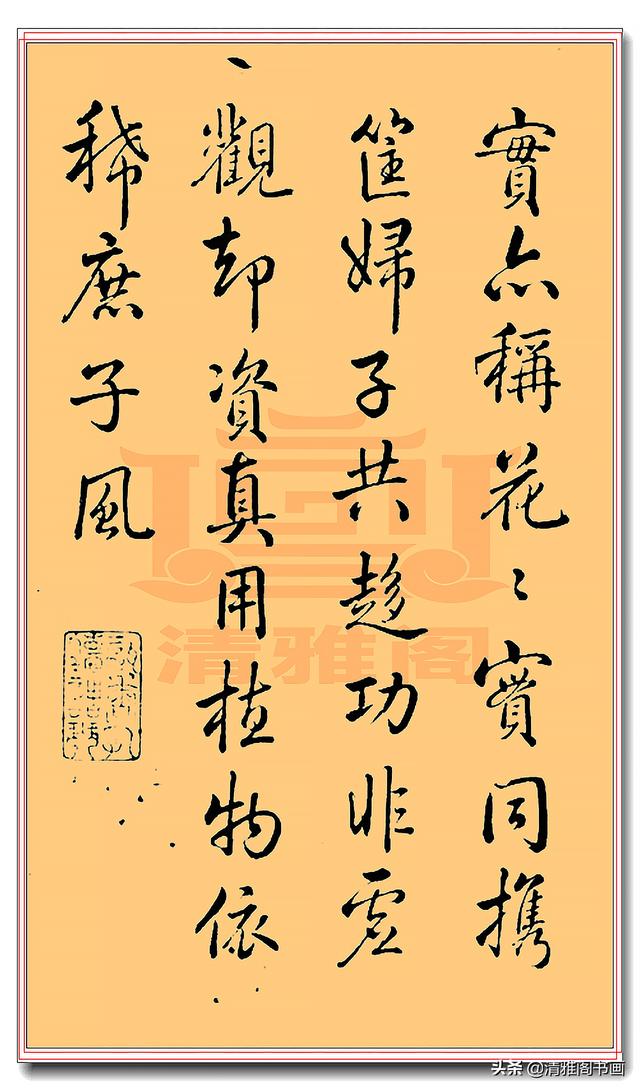 實亦稱花〻實同携
筐婦子共趍功非虛
觀却資真用植物依
稀庶子風
清雅阁
头条 @清雅阁书画